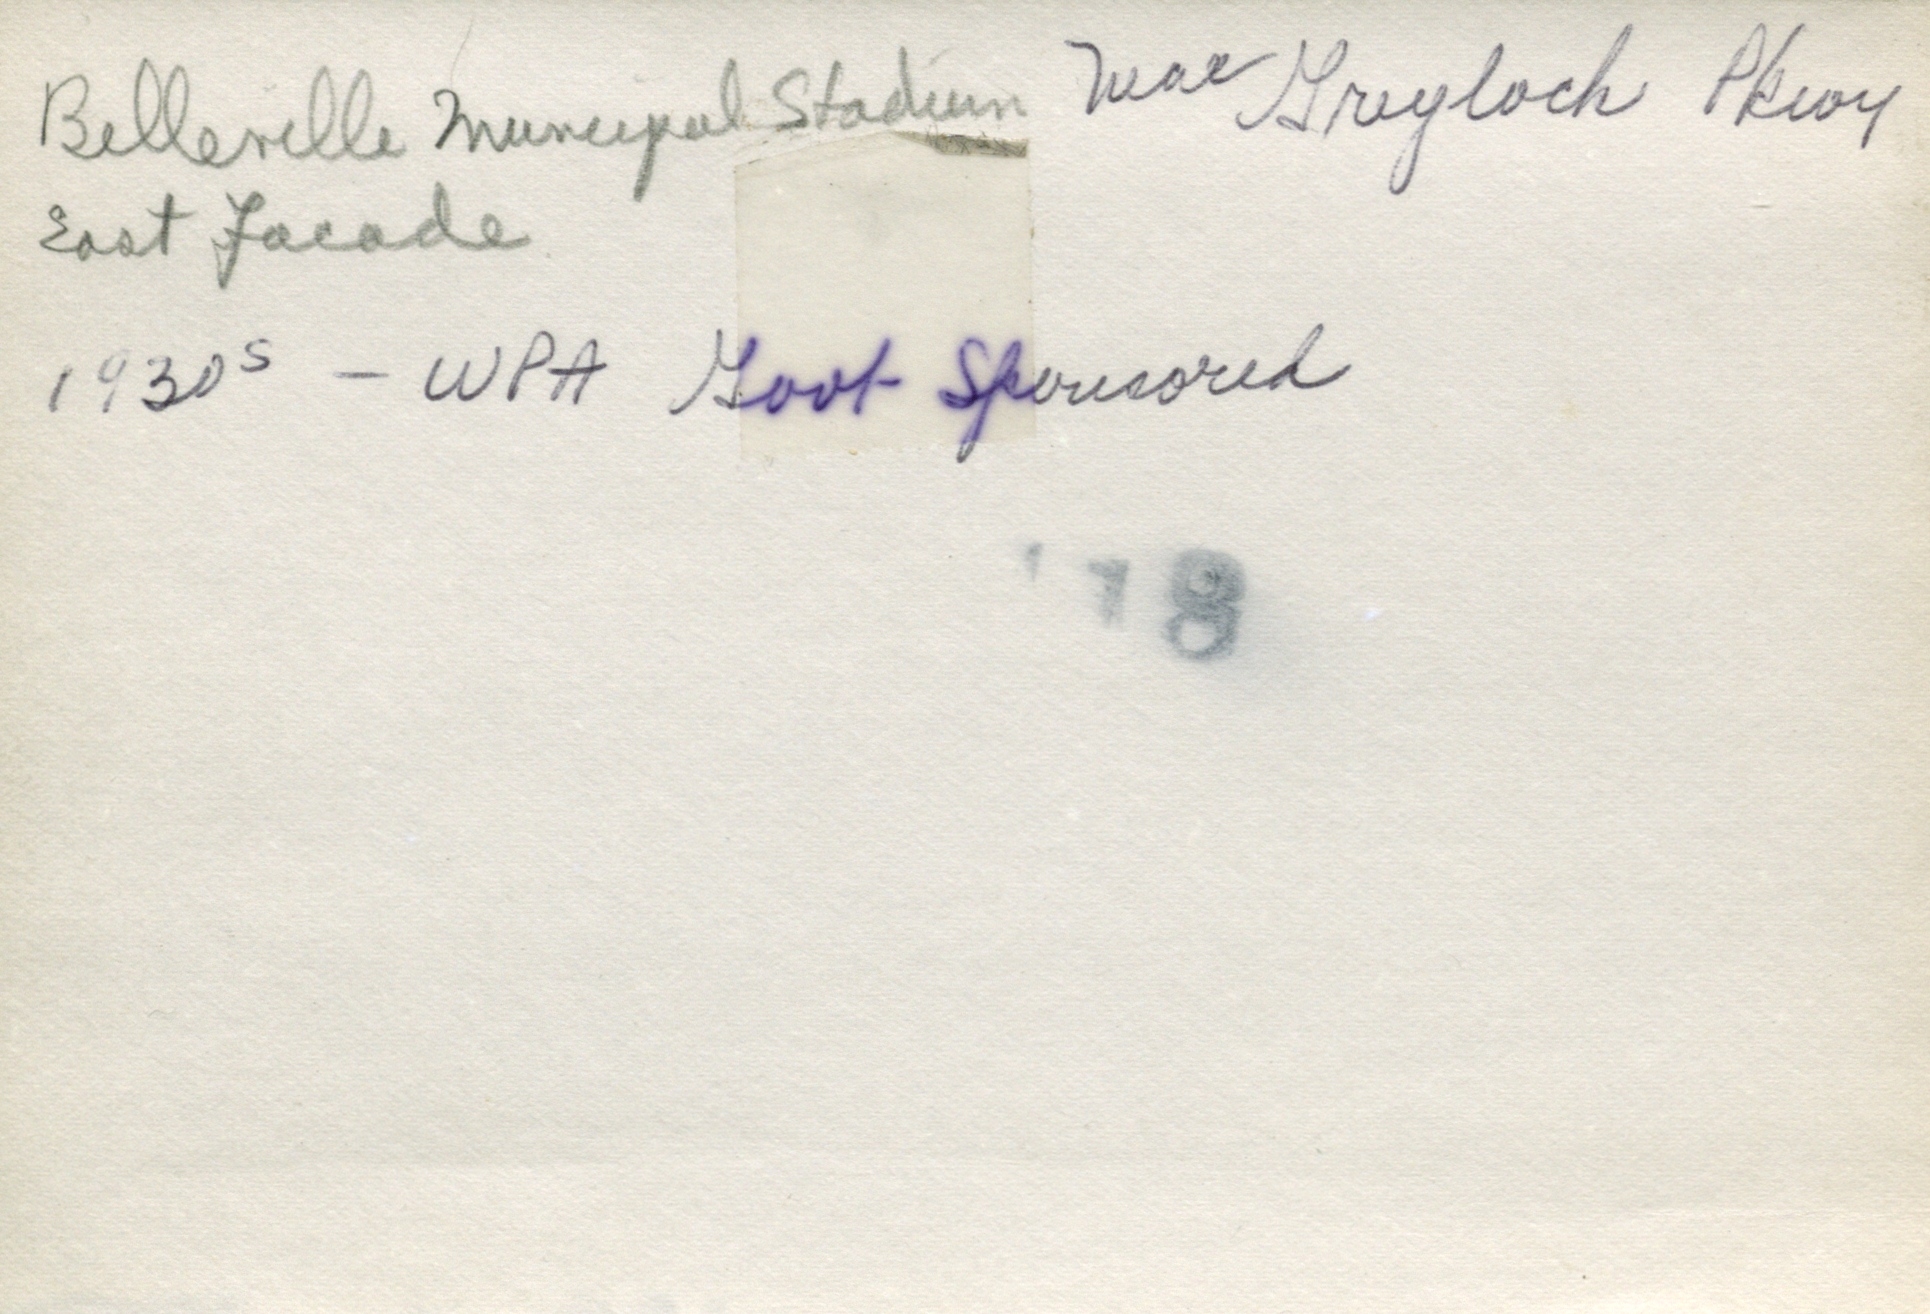 Belleville Municipal Stadium Near Greyloch Pkwy
East Facade
1930s - WPA Govt Sponsored